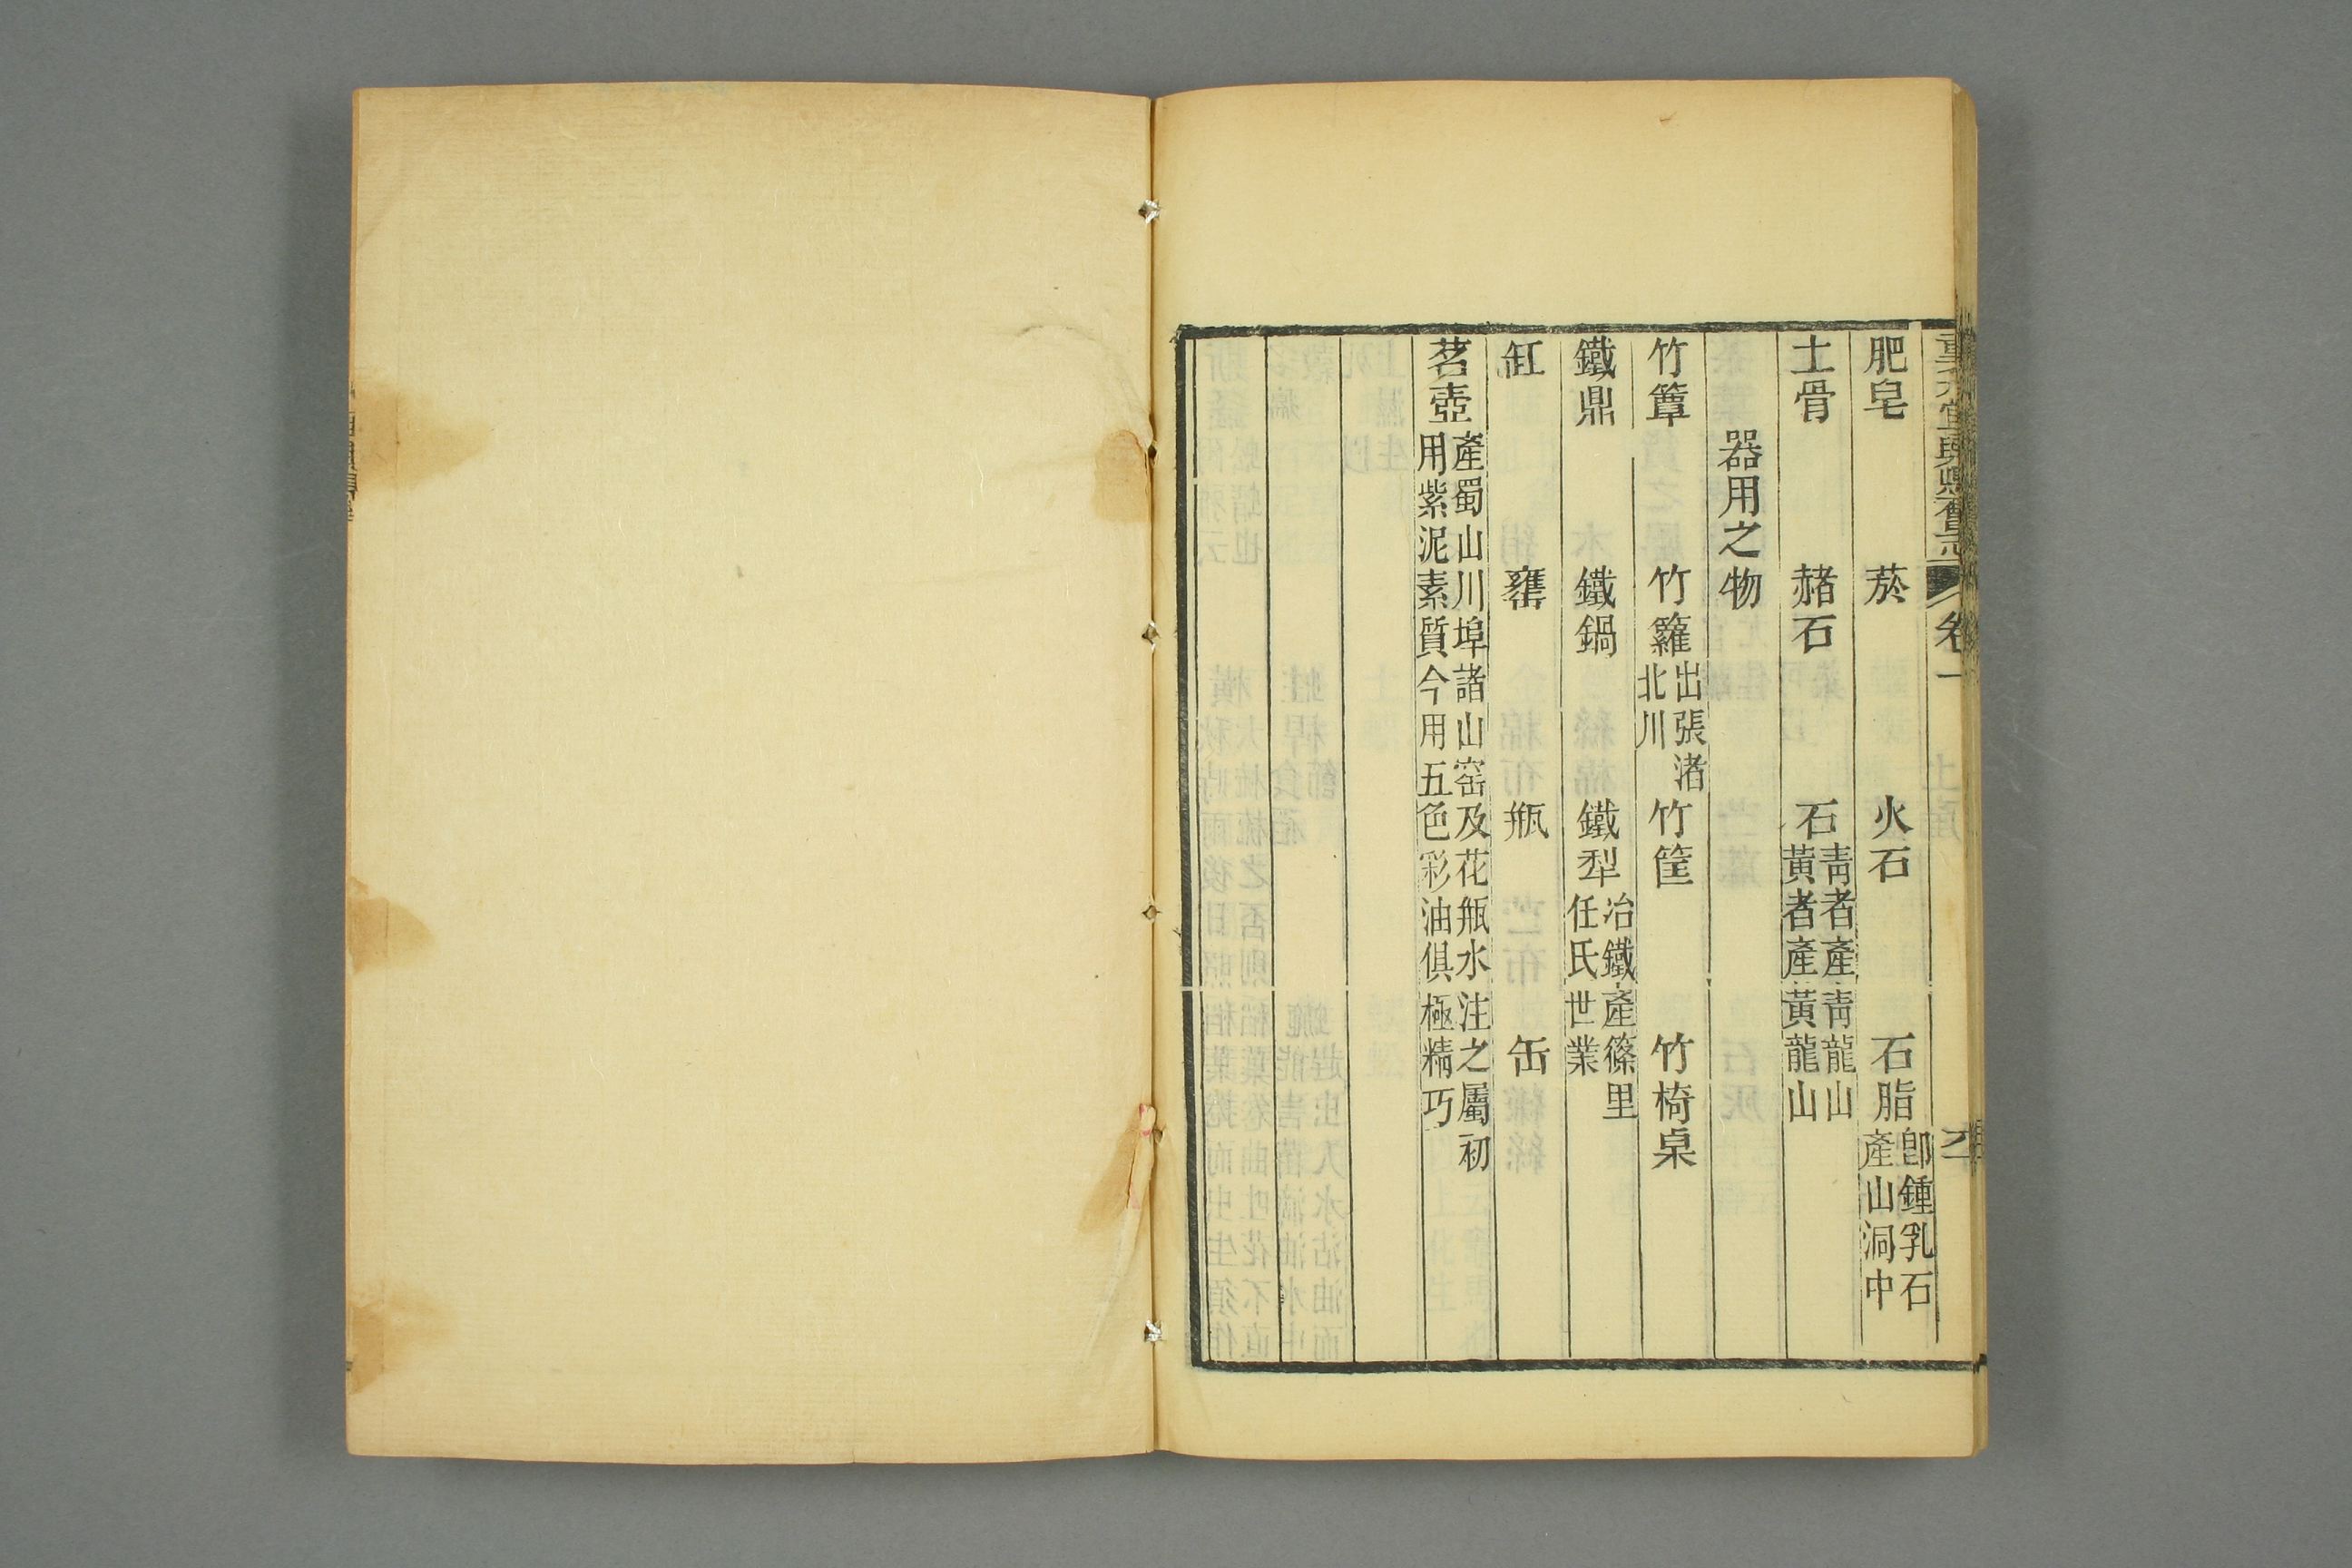 重刊宜興縣舊志 卷一
肥皂 菸 火石 石脂 卽鍾乳石產山洞中
土骨 赭石 石 青者產青龍山黃者產黃龍山
器用之物
竹簟 竹籮 出張渚北川 竹筐 竹椅桌
鐵鼎 鐵鍋 鐵犁 冶鐵產篠里任氏世業
缸 罋 瓶 缶
茗壺 產蜀山川埠諸山窑及花瓶水注之屬初用紫泥素質今用五色彩油俱極精巧